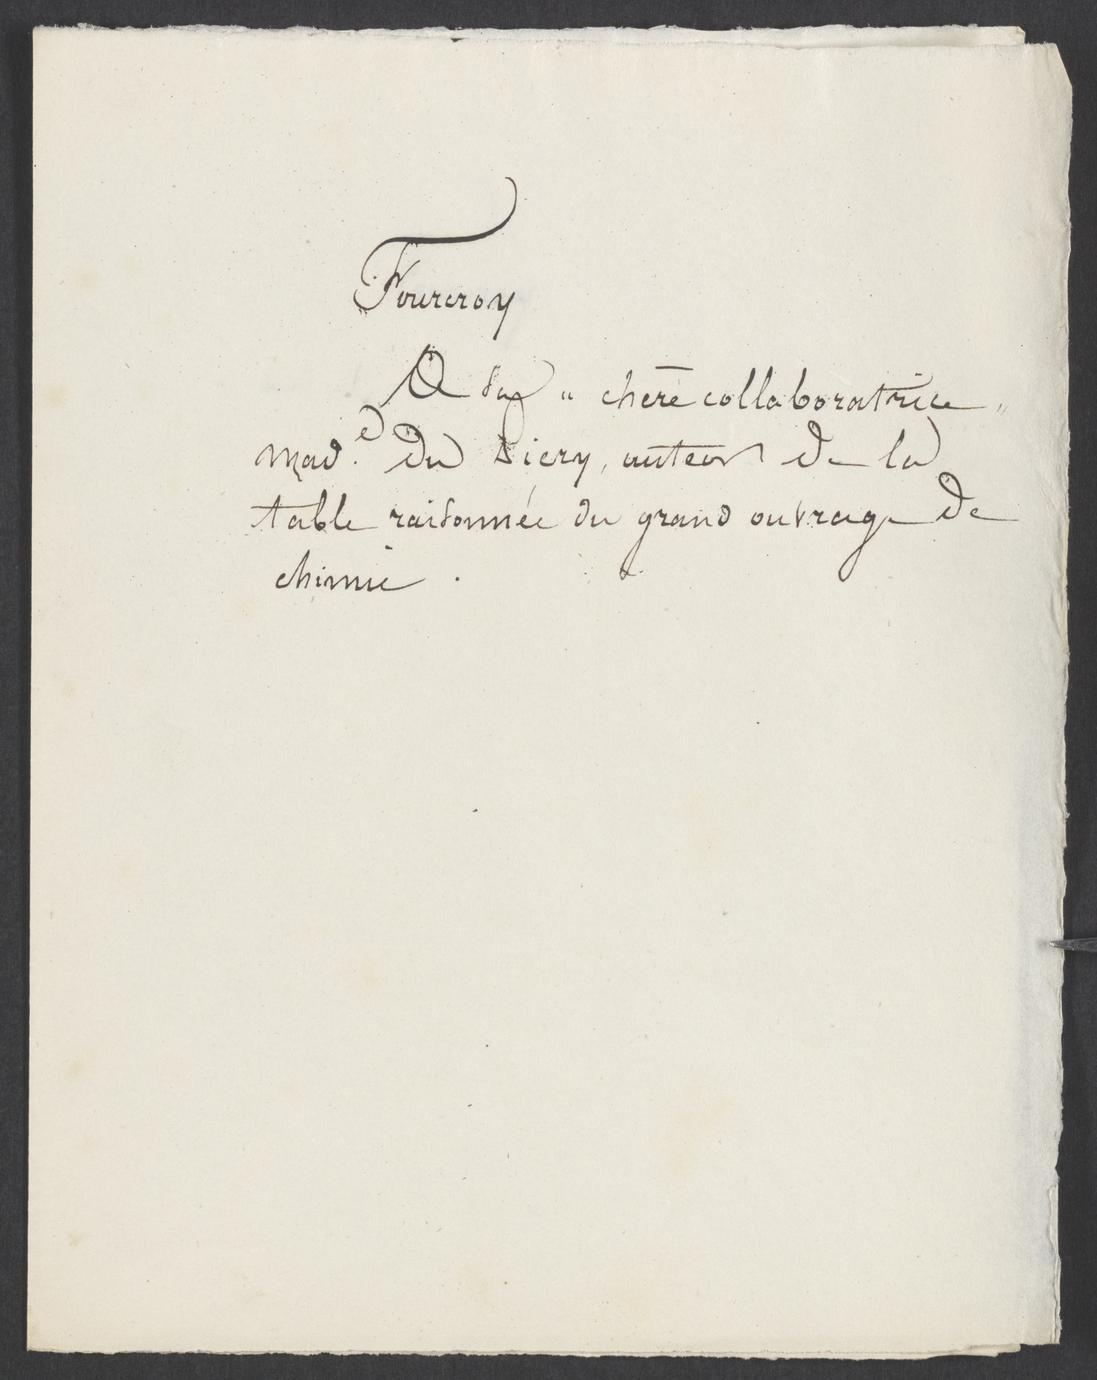 Fourcroy
A sa " chère collaboratrice "
Mad.e Du Piery, auteur de la
table raisonnée du grand ouvrage de
chimie.